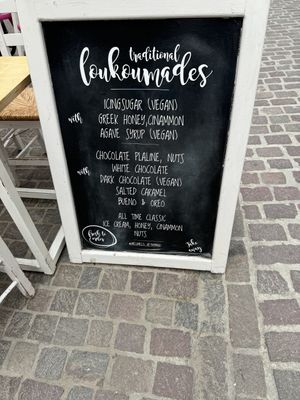 traditional
loukoumades
ICINGSUGAR (VEGAN)
with GREEK HONEY, CINAMMON
AGAVE SYRUP (VEGAN)
CHOCOLATE PLALINE, NUTS
with WHITE CHOCOLATE
DARK CHOCOLATE (VEGAN)
SALTED CARAMEL
BUENO & OREO
ALL TIME CLASSIC
ICE CREAM, HONEY, CINAMMON
NUTS
Take
away